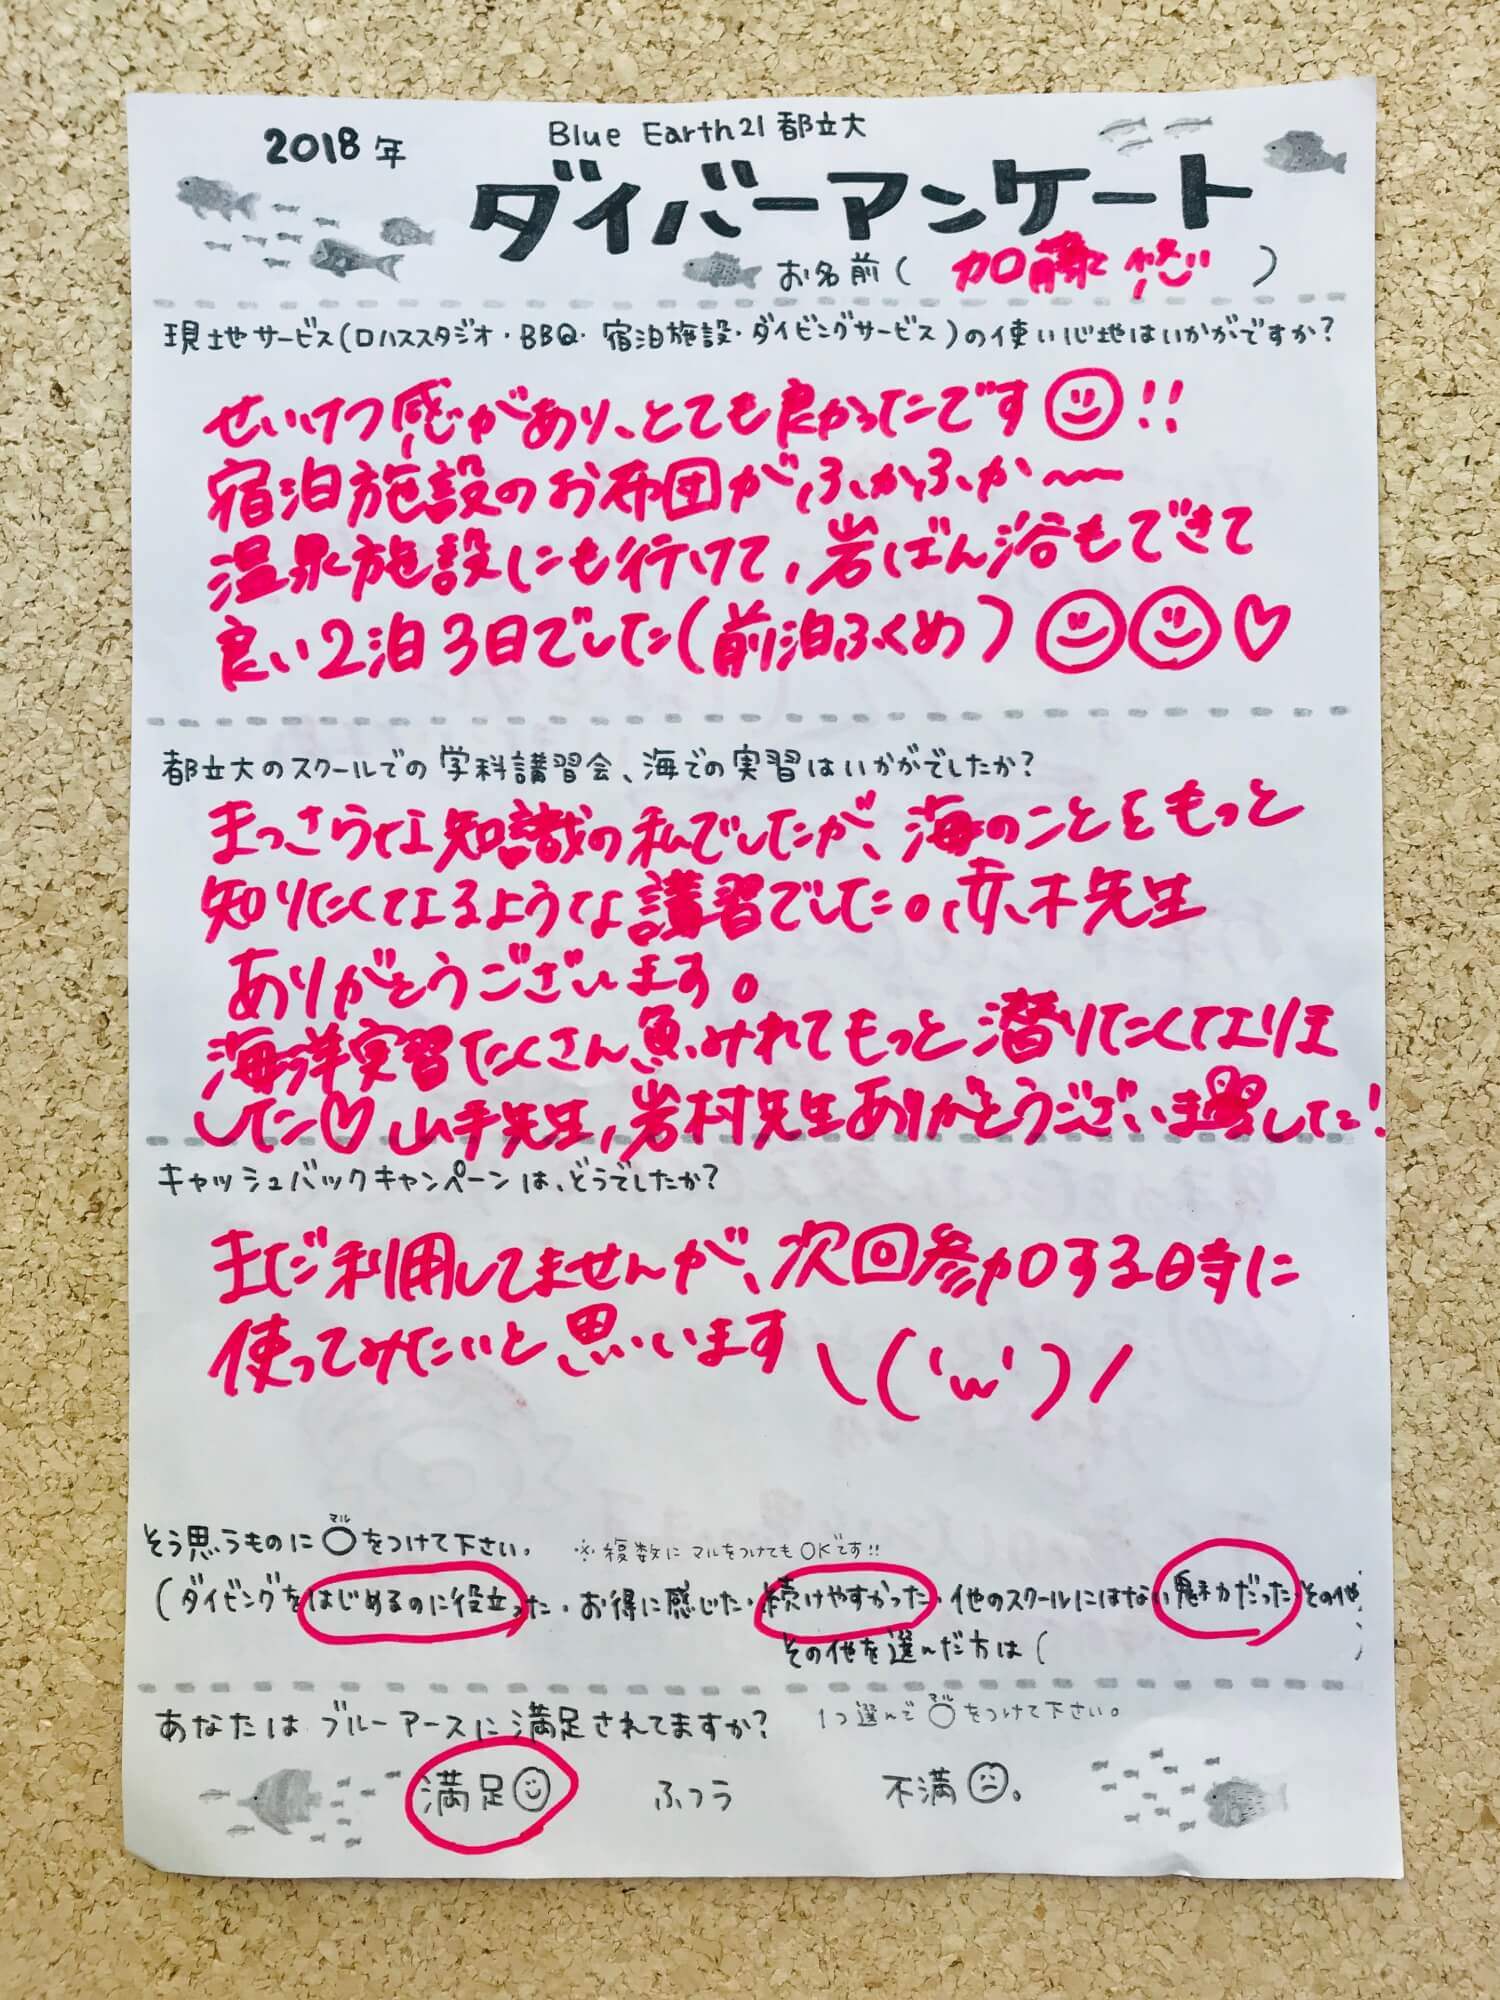 2018年
Blue Earth21 都立大
ダイバーアンケート
お名前( 加藤 悠 )
現地サービス(ロハススタジオ・BBQ・宿泊施設・ダイビングサービス)の使い心地はいかがですか?
せいけつ感があり、とても良かったです!!
宿泊施設のお布団がふかふか〜
温泉施設にも行けて、岩ばん浴もできて
良い2泊3日でした(前泊ふくめ)♡
都立大のスクールでの学科講習会、海での実習はいかがでしたか?
まっさらな知識の私でしたが、海のことをもっと
知りたくなるような講習でした。赤木先生
ありがとうございます。
海洋実習たくさん魚みれてもっと潜りたくなりま
した♡山手先生、岩村先生ありがとうございました!
キャッシュバックキャンペーンは、どうでしたか?
まだ利用してませんが、次回参加する時に
使ってみたいと思います \('ω')/
マル
そう思うものに○をつけて下さい。 ※複数にマルをつけてもOKです!!
(ダイビングをはじめるのに役立った・お得に感じた・続けやすかった・他のスクールにはない魅力だった・その他
その他を選んだ方は( )
あなたは ブルーアースに満足されてますか? 1つ選んで○をつけて下さい。
マル
満足 ふつう 不満。